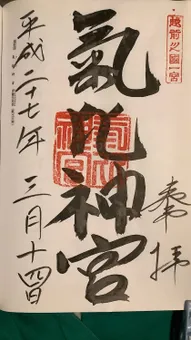 越前之國一宮
奉拝
氣比神宮
平成二十七年 三月十四日